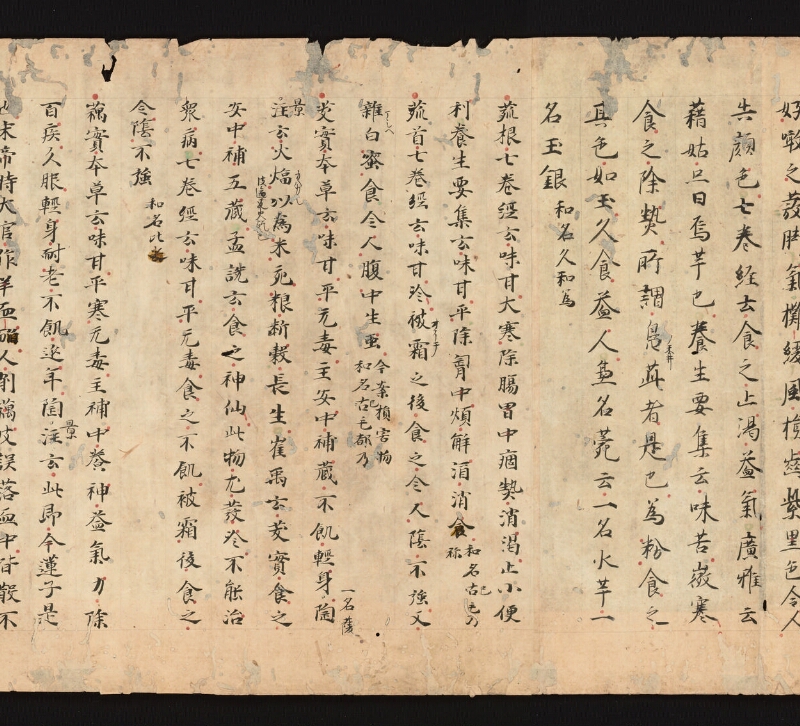 好噉之發脚氣攤緩風損齒紫黑色令人
失顔色七卷經云食之止渴益氣廣雅云
藉姑只曰烏芋也養生要集云味苦微寒
食之除熱所謂鳧茈者是也為粉食之
真色如玉久食益人兼名菀云一名水芋一
名玉銀 和名久和為
菰根七卷經云味甘大寒除腸胃中痼熱消渴止小便
利養生要集云味甘平除胃中煩解酒消食 和名古毛乃祢
菰首七卷經云味甘冷被霜之後食之令人陰不強又
雜白蜜食令人腹中生虫 今案損害物 和名古毛都乃
芰實本草云味甘平无毒主安中補蔵不飢輕身 一名蔆 陶
景注云火熇以為米充粮断穀長生崔禹云芰實食之
安中補五蔵孟詵云食之神仙此物尤發冷不能治
衆病七卷經云味甘平无毒食之不飢被霜後食之
令陰不強 和名比
藕實本草云味甘平寒无毒主補中養神益氣力除
百疾久服輕身耐老不飢延年陶景注云此即今蓮子是
也宋帝時大官作羊血䘓人削藕皮誤落血中皆散不